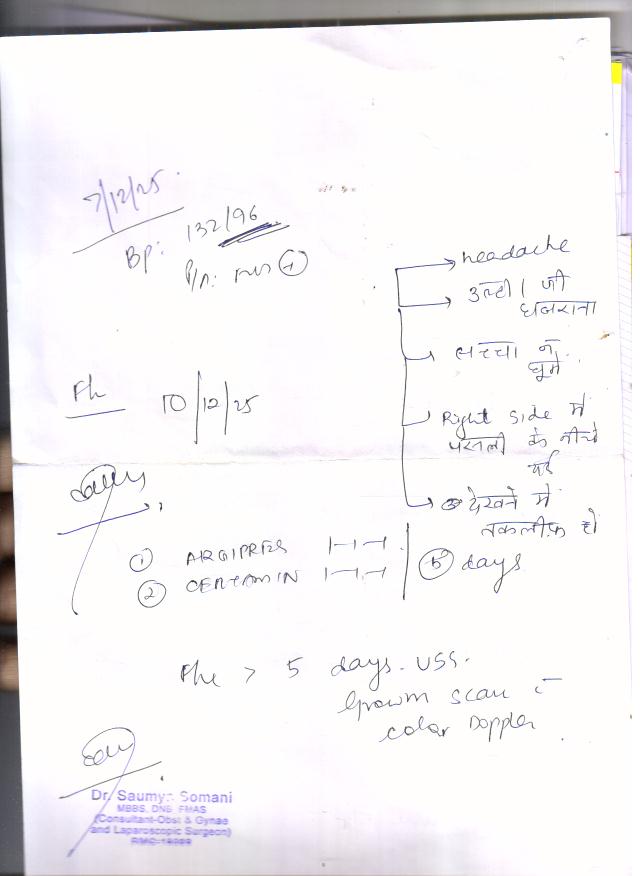 7/12/25.
BP: 132/96
P/A: FHS +
headache
उल्टी / जी
घबराना
बच्चा न
घूमे
Right side में
पसली के नीचे
दर्द
देखने में
तकलीफ हो
10/12/25
① ARGIPREG 1-1-1
② CERTAMIN 1-1-1
⑤ days
5 days. USG.
Growth scan c̄
color Doppler.
Dr. Saumya Somani
MBBS, DNB, FMAS
(Consultant-Obst & Gynae
and Laparoscopic Surgeon)